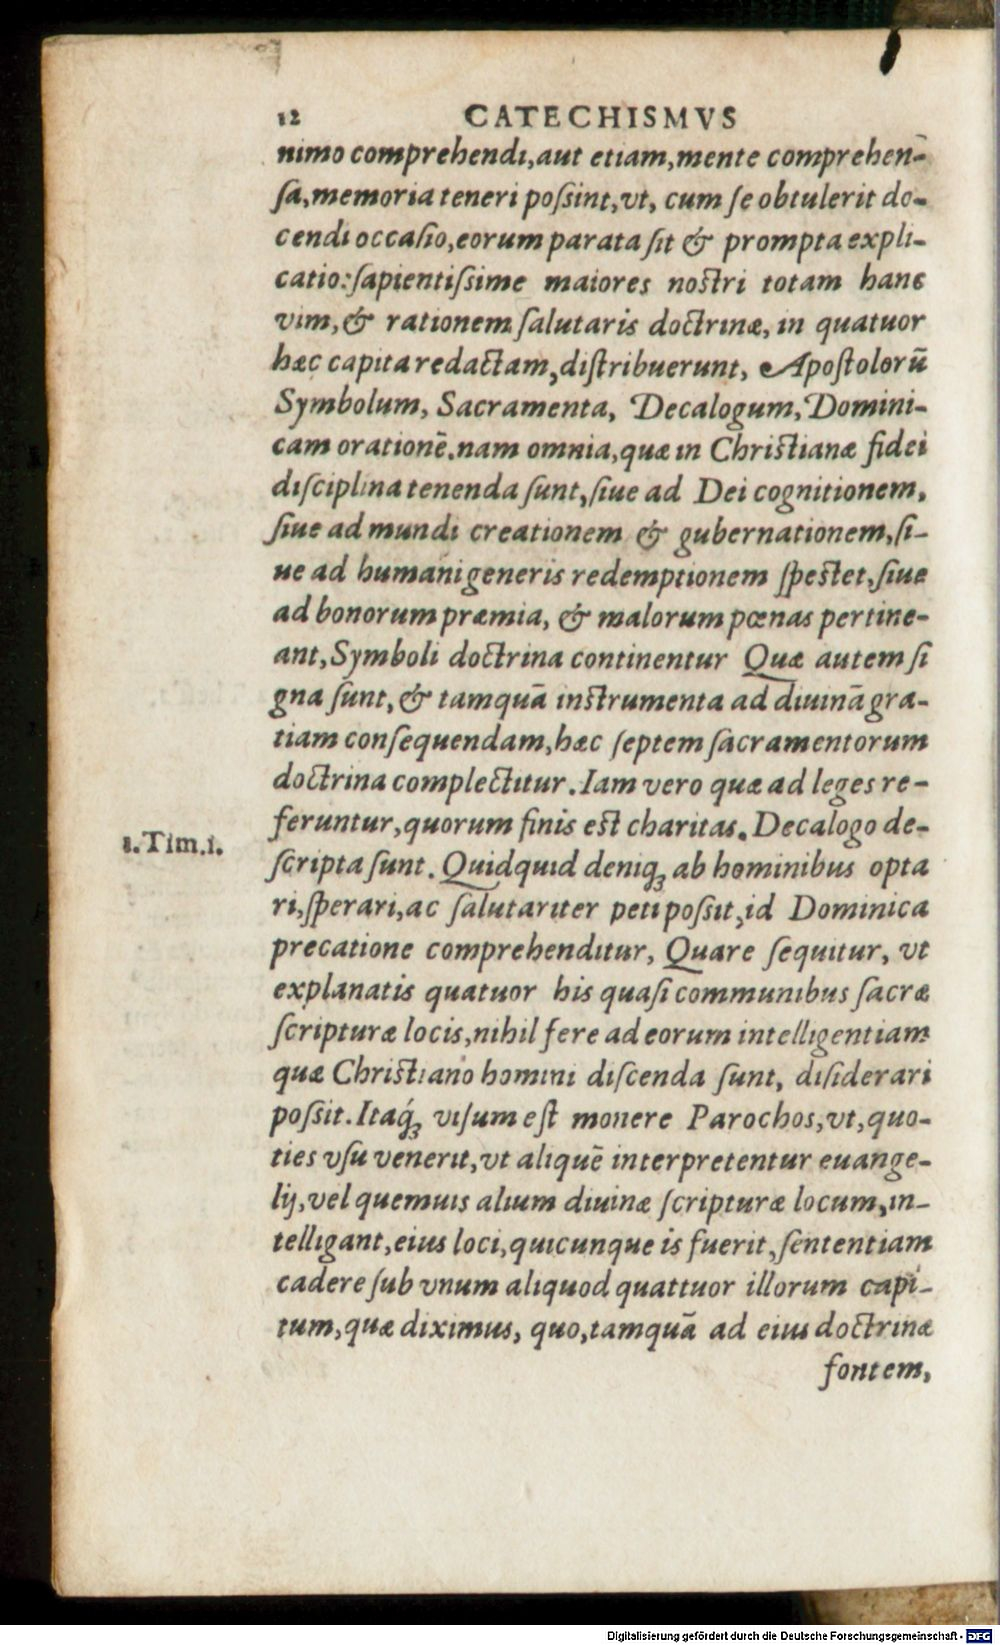 12 CATECHISMVS
nimo comprehendi, aut etiam, mente comprehen̄-
ſa, memoria teneri poſsint, vt, cum ſe obtulerit do-
cendi occaſio, eorum parata ſit & prompta expli-
catio: ſapientiſsime maiores noſtri totam hanc
vim, & rationem ſalutaris doctrinæ, in quatuor
hæc capita redactam, diſtribuerunt, Apoſtolorū
Symbolum, Sacramenta, Decalogum, Domini-
cam orationē. nam omnia, quæ in Chriſtianæ fidei
diſciplina tenenda ſunt, ſiue ad Dei cognitionem,
ſiue ad mundi creationem & gubernationem, ſi-
ue ad humani generis redemptionem ſpectet, ſiue
ad bonorum præmia, & malorum pœnas pertine-
ant, Symboli doctrina continentur Quæ autem ſi
gna ſunt, & tamquā inſtrumenta ad diuinā gra-
tiam conſequendam, hæc ſeptem ſacramentorum
doctrina complectitur. Iam vero quæ ad leges re-
feruntur, quorum finis eſt charitas. Decalogo de-
1.Tim.1.
ſcripta ſunt. Quidquid deniqꝫ ab hominibus opta
ri, ſperari, ac ſalutariter peti poſsit, id Dominica
precatione comprehenditur, Quare ſequitur, vt
explanatis quatuor his quaſi communibus ſacræ
ſcripturæ locis, nihil fere ad eorum intelligentiam
quæ Chriſtiano homini diſcenda ſunt, diſiderari
poſsit. Itaq́ꝫ viſum eſt monere Parochos, vt, quo-
ties vſu venerit, vt aliquē interpretentur euange-
lij, vel quemuis alium diuinæ ſcripturæ locum, in-
telligant, eius loci, quicunque is fuerit, ſententiam
cadere ſub vnum aliquod quattuor illorum capi-
tum, quæ diximus, quo, tamquā ad eius doctrinæ
fontem,
Digitalisierung gefördert durch die Deutsche Forschungsgemeinschaft - DFG